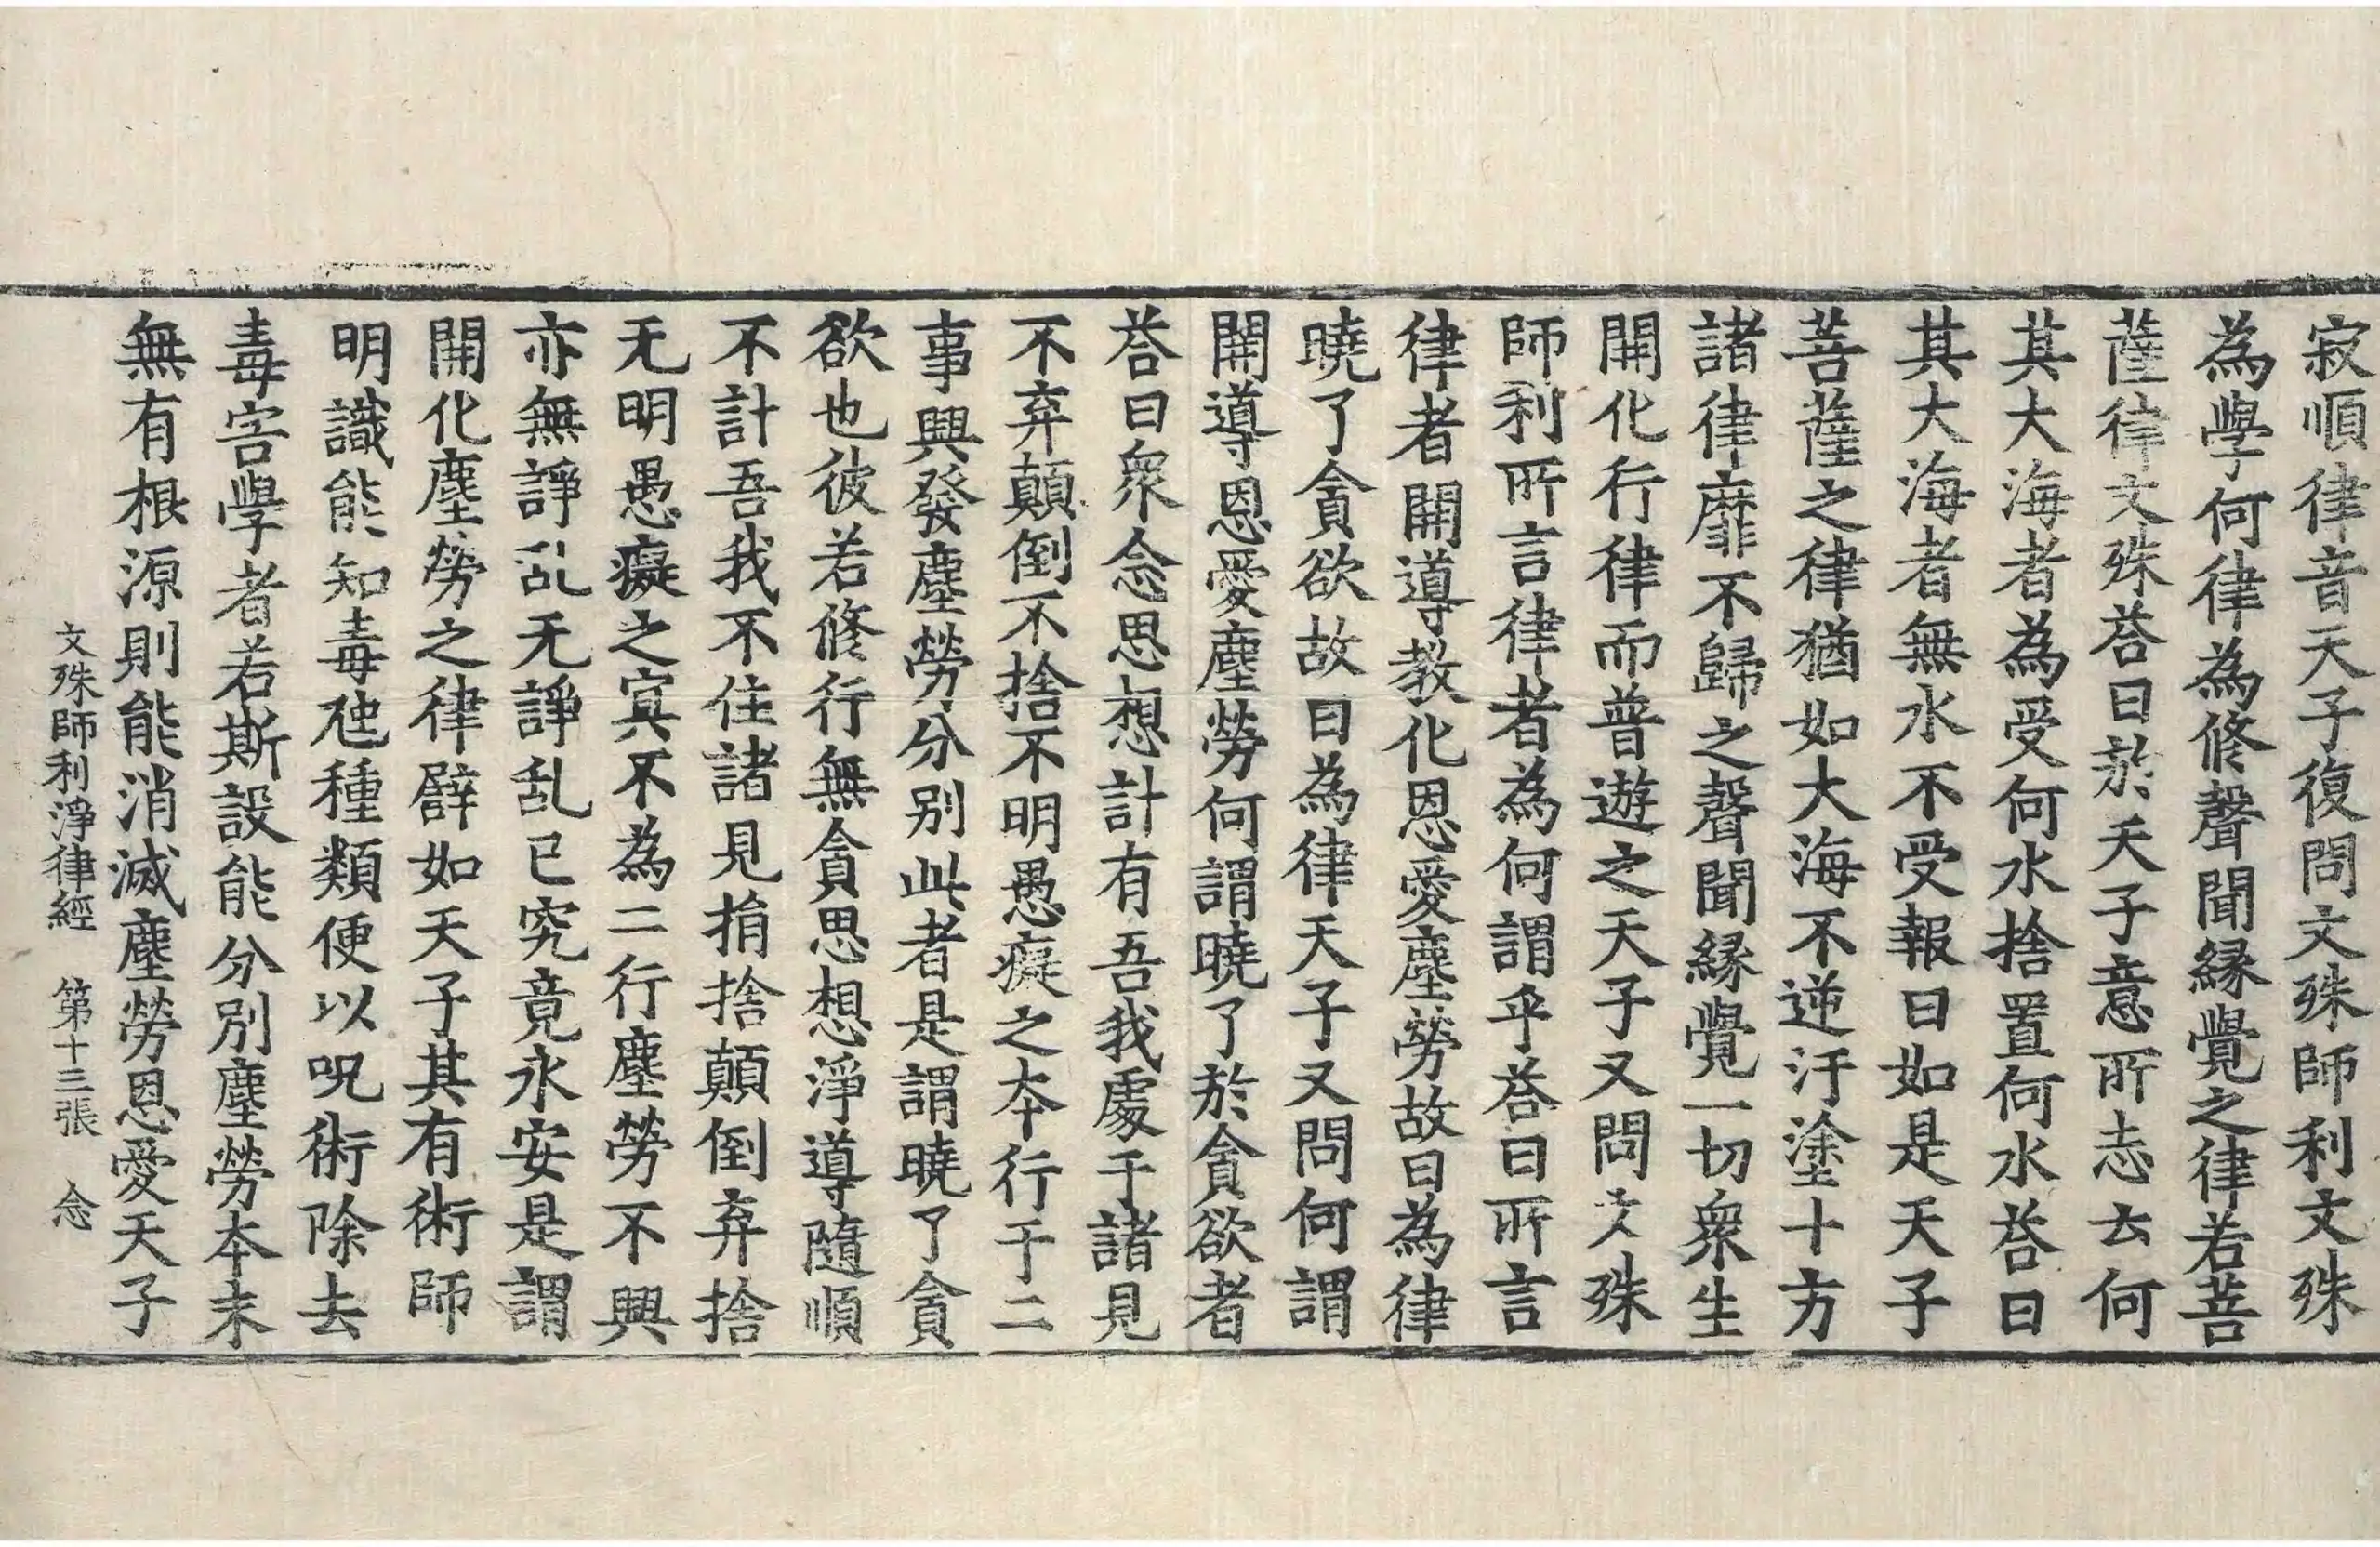 寂順律音天子復問文殊師利文殊
為學何律為修聲聞緣覺之律若菩
薩律文殊荅曰於天子意所志云何
其大海者為受何水捨置何水荅曰
其大海者無水不受報曰如是天子
菩薩之律猶如大海不逆汙塗十方
諸律靡不歸之聲聞緣覺一切衆生
開化行律而普遊之天子又問文殊
師利所言律者為何謂乎荅曰所言
律者開導教化恩愛塵勞故曰為律
曉了貪欲故曰為律天子又問何謂
開導恩愛塵勞何謂曉了於貪欲者
荅曰衆念思想計有吾我處于諸見
不弃顛倒不捨不明愚癡之本行于二
事興發塵勞分別此者是謂曉了貪
欲也彼若修行無貪思想淨導隨順
不計吾我不住諸見捐捨顛倒弃捨
无明愚癡之冥不為二行塵勞不興
亦無諍乱无諍乱已究竟永安是謂
開化塵勞之律辟如天子其有術師
明識能知毒虵種類便以呪術除去
毒害學者若斯設能分別塵勞本末
無有根源則能消滅塵勞恩愛天子
文殊師利淨律經 第十三張 念